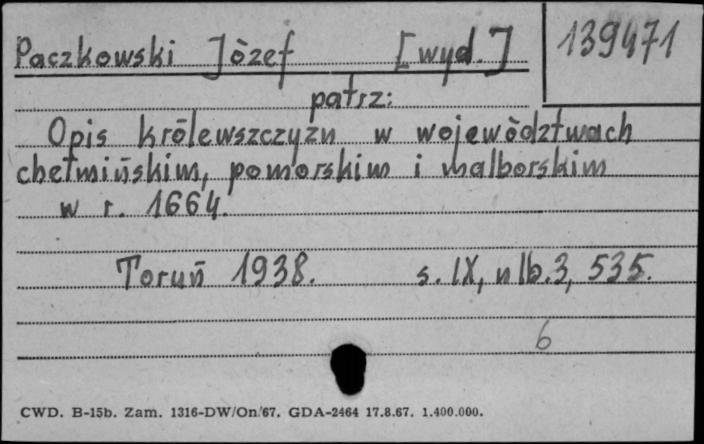 Paczkowski Józef [wyd.] 139471
patrz:
Opis królewszczyzn w województwach
chełmińskim, pomorskim i malborskim
w r. 1664.
Toruń 1938. s. IX, nlb.3, 535.
6
CWD. B-15b. Zam. 1316-DW/On/67. GDA-2464 17.8.67. 1.400.000.